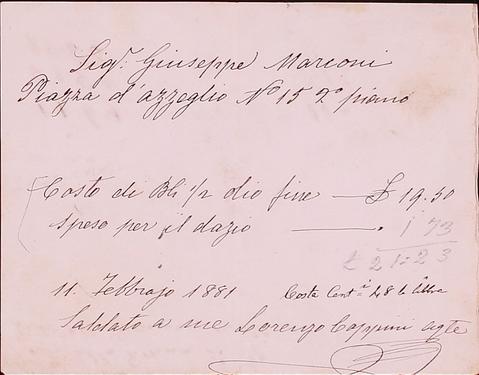 Sigr. Giuseppe Marconi
Piazza d'azzeglio No 15 2o piano
Costo di Bli 1/2 olio fine — £ 19.50
spese per il dazio — . 1 73
£ 21:23
11. Febbrajo 1881 Costa Cent.i 48 la
Saldato a me Lorenzo Cappini agte